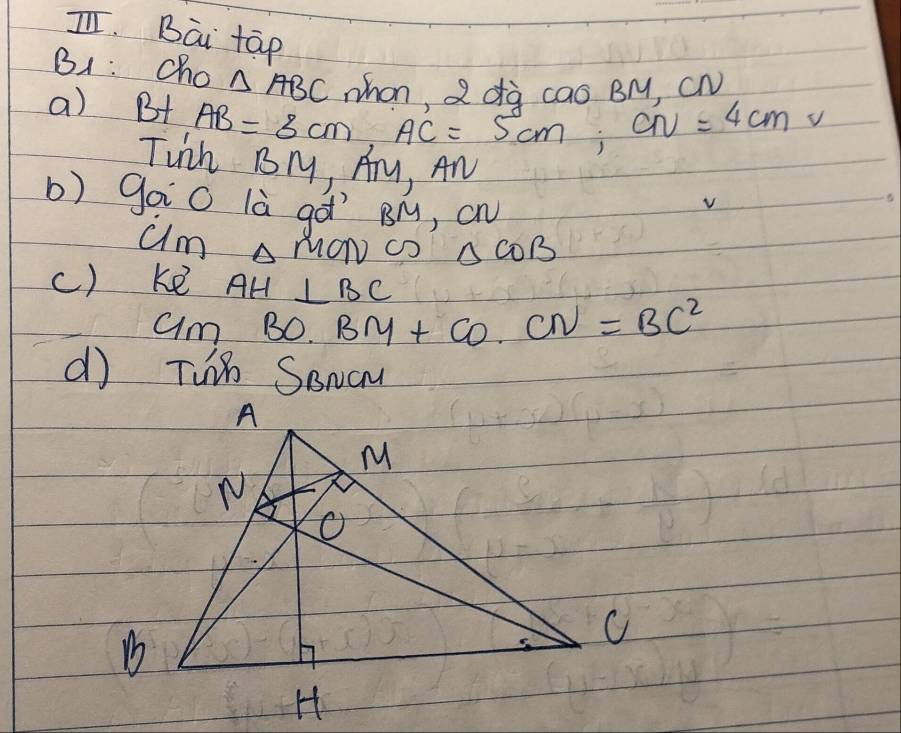 III. Bài tập
B1: Cho Δ ABC nhọn, 2 đg cao BM, CN
a) Bt AB = 3 cm, AC = 5 cm; CN = 4 cm v
Tính BM, AM, AN
b) gọi O là gđ' BM, CN v
Cm Δ MON ∽ Δ COB
c) Kẻ AH ⊥ BC
Cm BO. BM + CO. CN = BC²
d) Tính SBNCM
A
M
N
O
B
C
H